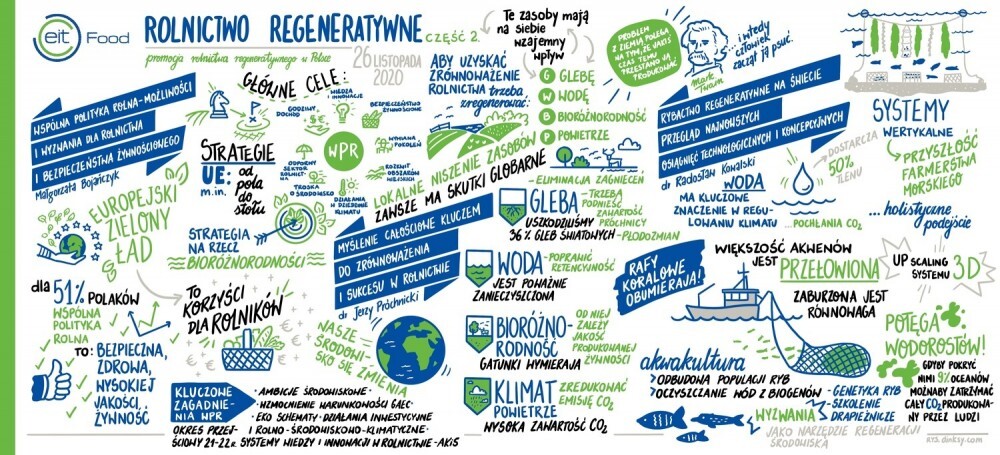 eit Food
ROLNICTWO REGENERATYWNE
CZĘŚĆ 2.
promocja rolnictwa regeneratywnego w Polsce
26 LISTOPADA
2020
WSPÓLNA POLITYKA ROLNA-MOŻLIWOŚCI
I WYZWANIA DLA ROLNICTWA
I BEZPIECZEŃSTWA ŻYWNOŚCIOWEGO
Małgorzata Bojańczyk
EUROPEJSKI
ZIELONY
ŁAD
dla 51% POLAKÓW
WSPÓLNA
POLITYKA
ROLNA
TO: BEZPIECZNA,
ZDROWA,
WYSOKIEJ
JAKOŚCI,
ŻYWNOŚĆ
GŁÓWNE CELE:
GODZIWY
DOCHÓD
WIEDZA
I INNOWACJE
BEZPIECZEŃSTWO
ŻYWNOŚCIOWE
WPR
WYMIANA
POKOLEŃ
ODPORNY
SEKTOR
ROLNICTWA
ROZWÓJ
OBSZARÓW
WIEJSKICH
TROSKA
O ŚRODOWISKO
DZIAŁANIA
W DZIEDZINIE
KLIMATU
STRATEGIE
UE:
m.in.
od
pola
do
stołu
STRATEGIA
NA RZECZ
BIORÓŻNORODNOŚCI
TO
KORZYŚCI
DLA ROLNIKÓW
KLUCZOWE
ZAGADNIE-
NIA WPR
OKRES PRZEJ-
ŚCIOWY 21-22R.
• AMBICJE ŚRODOWISKOWE•
•WZMOCNIENIE WARUNKOWOŚCI GAEC•
•EKO SCHEMATY• DZIAŁANIA INWESTYCYJNE
I ROLNO-ŚRODOWISKOWO-KLIMATYCZNE•
SYSTEMY WIEDZY I INNOWACJI W ROLNICTWIE-AKIS
Te zasoby mają
na siebie
wzajemny
wpływ
ABY UZYSKAĆ
ZRÓWNOWAŻENIE
ROLNICTWA trzeba
zregenerować:
G GLEBĘ
W WODĘ
B BIORÓŻNORODNOŚĆ
P POWIETRZE
LOKALNE NISZCZENIE ZASOBÓW
ZAWSZE MA SKUTKI GLOBALNE
MYŚLENIE CAŁOŚCIOWE KLUCZEM
DO ZRÓWNOWAŻENIA
I SUKCESU W ROLNICTWIE
dr Jerzy Próchnicki
NASZE
ŚRODOWI-
SKO SIĘ ZMIENIA
GLEBA
USZKODZILIŚMY
36% GLEB ŚWIATOWYCH
-ELIMINACJA ZAGNIECEŃ
-TRZEBA
PODNIEŚĆ
ZAWARTOŚĆ
PRÓCHNICY
-PŁODOZMIAN
WODA
JEST POWAŻNIE
ZANIECZYSZCZONA
-POPRAWIĆ
RETENCYJNOŚĆ
BIORÓŻNO-
RODNOŚĆ
GATUNKI WYMIERAJĄ
OD NIEJ
ZALEŻY
JAKOŚĆ
PRODUKOWANEJ
ŻYWNOŚCI
KLIMAT
POWIETRZE
WYSOKA ZAWARTOŚĆ CO2
ZREDUKOWAĆ
EMISJĘ CO2
PROBLEM
Z ZIEMIĄ POLEGA
NA TYM, ŻE JAKIŚ
CZAS TEMU
PRZESTANO JĄ
PRODUKOWAĆ
Mark
Twain
...i wtedy
człowiek
zaczął ją psuć.
RYBACTWO REGENERATYWNE NA ŚWIECIE
PRZEGLĄD NAJNOWSZYCH
OSIĄGNIĘĆ TECHNOLOGICZNYCH I KONCEPCYJNYCH
dr Radosław Kowalski
WODA
MA KLUCZOWE
ZNACZENIE W REGU-
LOWANIU KLIMATU
DOSTARCZA
50%
TLENU
...POCHŁANIA CO2
SYSTEMY
WERTYKALNE
PRZYSZŁOŚĆ
FARMERSTWA
MORSKIEGO
...holistyczne
podejście
RAFY
KORALOWE
OBUMIERAJĄ!
WIĘKSZOŚĆ AKWENÓW
JEST PRZEŁOWIONA
ZABURZONA JEST
RÓWNOWAGA
UP SCALING
SYSTEMU 3D
POTĘGA
WODOROSTÓW!
GDYBY POKRYĆ
NIMI 9% OCEANÓW
MOŻNABY ZATRZYMAĆ
CAŁY CO2 PRODUKOWA-
NY PRZEZ LUDZI
akwakultura
ODBUDOWA POPULACJI RYB
OCZYSZCZANIE WÓD Z BIOGENÓW
WYZWANIA
-GENETYKA RYB
-SZKOLENIE
DRAPIEŻNICZE
JAKO NARZĘDZIE REGENERACJI
ŚRODOWISKA
RYS. dinksy.com